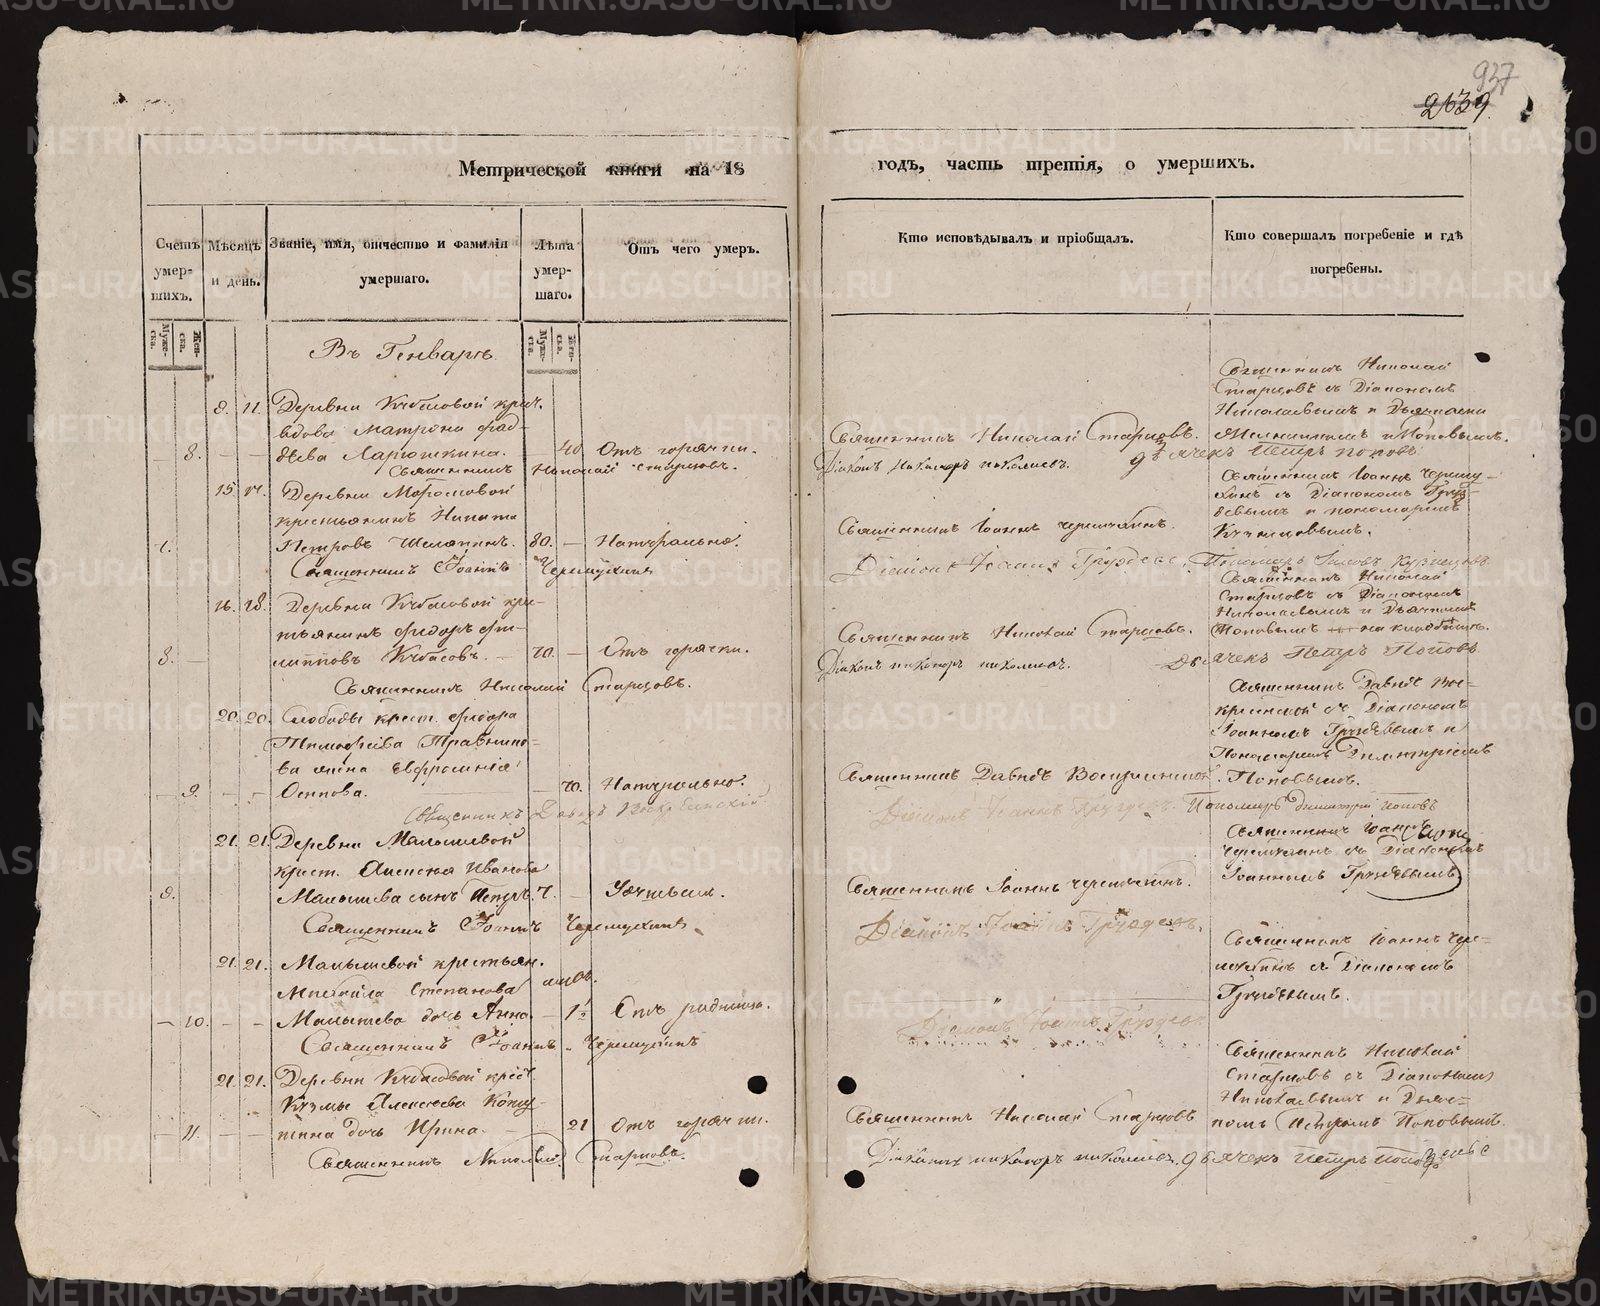 937
2639.
Метрической книги на 18
годъ, часть третія, о умершихъ.
Счетъ умершихъ.
Мѣсяцъ и день.
Званіе, имя, отчество и фамилія умершаго.
Лѣта умершаго.
Отъ чего умеръ.
Кто исповѣдывалъ и пріобщалъ.
Кто совершалъ погребеніе и гдѣ погребены.
Въ Генварѣ.
8. 11. Деревни Кубасовой крес.
вдова Матрона
8. Ларюшкина. 40 Отъ горячки.
Священникъ Николай Старцовъ.
Священникъ Николай Старцовъ.
Діаконъ Никаноръ Николаевъ. Дьячекъ Петръ Поповъ.
Священникъ Николай
Старцовъ съ Діакономъ
Николаевымъ и Дьячками
и Поповымъ.
15. 17. Деревни
крестьянинъ Никита
Петровъ 80. Натурально.
Священникъ Іоаннъ Черемухинъ
Священникъ Іоаннъ Черемухинъ.
Діаконъ Іоаннъ Груздевъ. Пономарь Кузнецовъ
Священникъ Іоаннъ Черему-
хинъ съ Діакономъ Груз-
девымъ и пономаремъ
Кузнецовымъ.
16. 18. Деревни Кубасовой кре-
стьянинъ Федоръ Фи-
8. липповъ Кубасовъ. 70. Отъ горячки.
Священникъ Николай Старцовъ.
Священникъ Николай Старцовъ.
Діаконъ Никаноръ Николаевъ. Дьячекъ Петръ Поповъ
Священникъ Николай
Старцовъ съ Діакономъ
Николаевымъ и Дьячкомъ
Поповымъ на кладбищѣ.
20. 20. Слободы крест. Федора
Тимофѣева Травнико-
ва жена Евфросинія
9. Осипова. 70. Натурально.
Священникъ Давидъ Воскресенскій
Священникъ Давидъ Воскресенской.
Діаконъ Іоаннъ Груздевъ. Пономарь Димитрій Поповъ
Священникъ Давидъ Вос-
кресенской съ Діакономъ
Іоанномъ Груздевымъ и
Пономаремъ Димитріемъ
Поповымъ.
21. 21. Деревни Малышевой
крест. Алексея Иванова
9. Малышева сынъ Петръ. 7.
Священникъ Іоаннъ Черемухинъ
Священникъ Іоаннъ Черемухинъ.
Діаконъ Іоаннъ Груздевъ.
Священникъ Іоаннъ
Черемухинъ съ Діакономъ
Іоанномъ Груздевымъ.
21. 21. Малышевой крестьян.
Михаила Степанова
10. Малышева дочь Анна. 1½ Отъ родимца.
Священникъ Іоаннъ Черемухинъ
Діаконъ Іоаннъ Груздевъ
Священникъ Іоаннъ Чере-
мухинъ съ Діакономъ
Груздевымъ.
21. 21. Деревни Кубасовой крест.
Кузмы Алексеева
11. дочь Ирина. 21 Отъ горячки.
Священникъ Николай Старцовъ.
Священникъ Николай Старцовъ
Діаконъ Никаноръ Николаевъ. Дьячекъ Петръ Поповъ
Священникъ Николай
Старцовъ съ Діакономъ
Николаевымъ и Дьяч-
комъ Петромъ Поповымъ.
METRIKI.GASO-URAL.RU